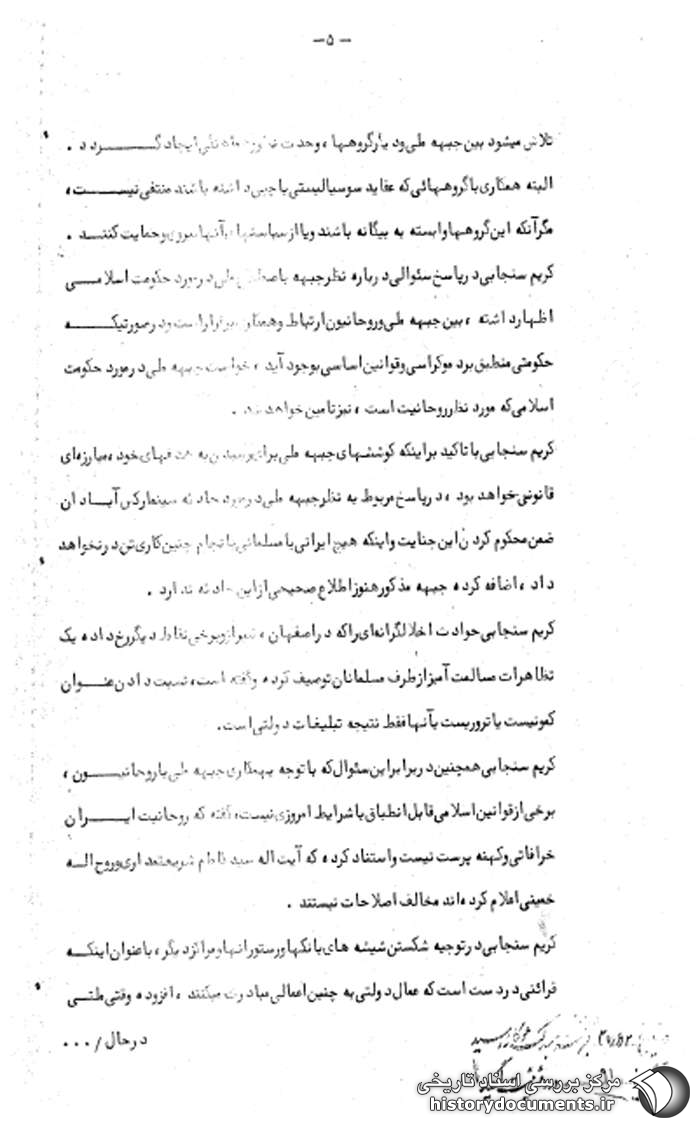 — ۵ —
تلاش میشود بین جبهه ملی و دیگر گروهها ، وحدت ایجاد گردد .
البته همکاری با گروههائی که عقاید سوسیالیستی یا چپی داشته باشند منتفی نیست ،
مگر آنکه این گروهها وابسته به بیگانه باشند و یا از سیاستهای آنها پیروی و حمایت کنند .
کریم سنجابی در پاسخ سئوالی درباره نظر جبهه ملی در مورد حکومت اسلامی
اظهار داشته ، بین جبهه ملی و روحانیون ارتباط و همکاری برقرار است و در صورتیکه
حکومتی منطبق بر دموکراسی و قوانین اساسی بوجود آید ، خواست جبهه ملی در مورد حکومت
اسلامی که مورد نظر روحانیت است ، نیز تامین خواهد شد .
کریم سنجابی با تاکید بر اینکه کوششهای جبهه ملی برای رسیدن به هدفهای خود ، مبارزه‌ای
قانونی خواهد بود ، در پاسخ مربوط به نظر جبهه ملی در مورد حادثه سینما رکس آبادان
ضمن محکوم کردن این جنایت و اینکه هیچ ایرانی یا مسلمانی بانجام چنین کاری تن در نخواهد
داد ، اضافه کرده جبهه مذکور هنوز اطلاع صحیحی از این حادثه ندارد .
کریم سنجابی حوادث اخلالگرانه‌ای را که در اصفهان ، شیراز و برخی نقاط دیگر رخ داده یک
تظاهرات مسالمت آمیز از طرف مسلمانان توصیف کرده و گفته است ، نسبت دادن عنوان
کمونیست یا تروریست بآنها فقط نتیجه تبلیغات دولتی است .
کریم سنجابی همچنین در برابر این سئوال که با توجه بهمکاری جبهه ملی با روحانیون ،
برخی از قوانین اسلامی قابل انطباق با شرایط امروزی نیست ، گفته که روحانیت ایران
خرافاتی و کهنه پرست نیست و استناد کرده که آیت اله سید کاظم شریعتمداری و روح اله
خمینی اعلام کرده‌اند مخالف اصلاحات نیستند .
کریم سنجابی در توجیه شکستن شیشه های بانکها و رستورانها و مراکز دیگر ، با عنوان اینکه
قرائنی در دست است که عمال دولتی به چنین اعمالی مبادرت میکنند ، افزوده وقتی ملتی
در حال / ۰۰۰
مرکز بررسی اسناد تاریخی
historydocuments.ir